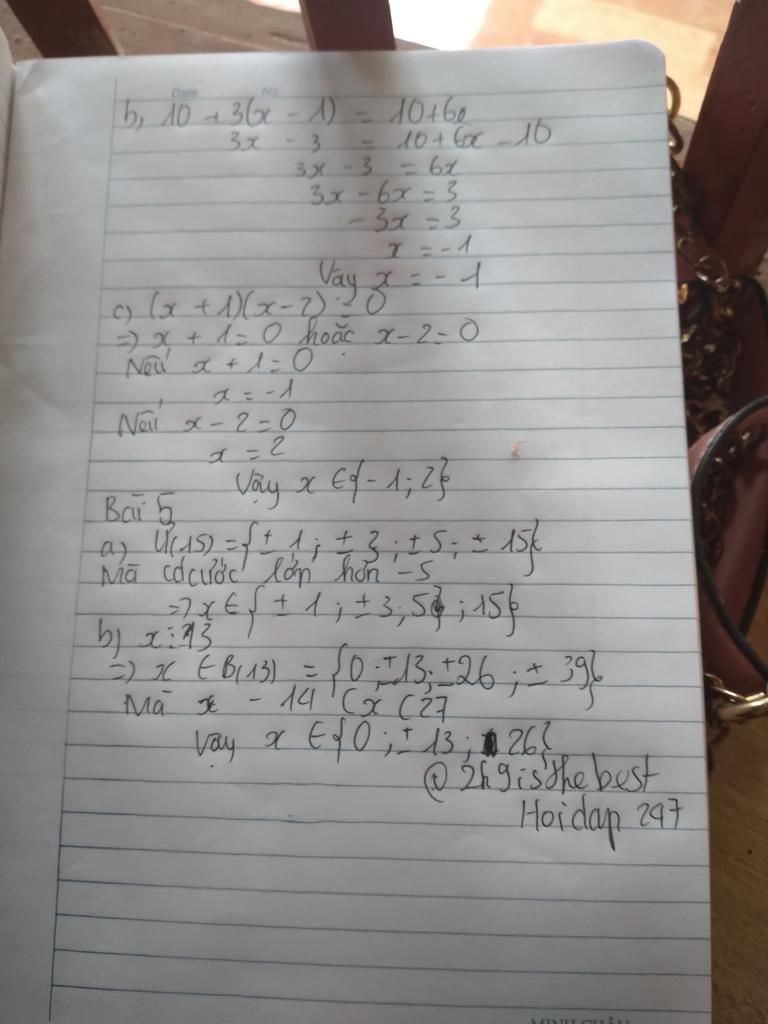 Date No.
b, 10 + 3(x - 1) = 10+6x
3x - 3 = 10+6x -10
3x - 3 = 6x
3x - 6x = 3
- 3x = 3
x = -1
Vậy x = - 1
c) (x + 1)(x - 2) = 0
=> x + 1 = 0 hoặc x - 2 = 0
Nếu x + 1 = 0
x = -1
Nếu x - 2 = 0
x = 2
Vậy x ∈ {- 1 ; 2}
Bài 5
a) Ư(15) = {± 1 ; ± 3 ; ± 5 ; ± 15}
Mà các ước lớn hơn -5
=> x ∈ { ± 1 ; ± 3 ; 5 ; 15}
b) x ⋮ 13
=> x ∈ B(13) = {0 ; ±13 ; ±26 ; ± 39}
Mà x - 14 < x < 27
Vậy x ∈ {0 ; ± 13 ; 26}
@ 2k9 is the best
Hoidap 247